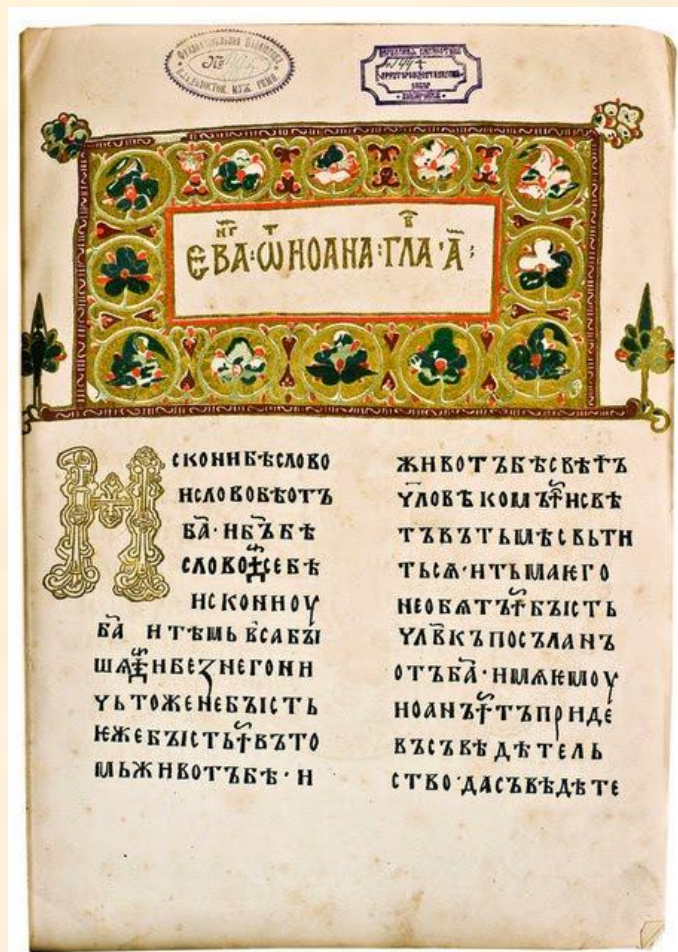 ВЛАДИВОСТОК. МУЖ. ГИМН.
№
ЄВАⷩ҇ⷢ҇·Ѿ ИОАНА·ГЛАⷡ҇·А҃·
ИСКОНИБѢСЛОВО
ИСЛОВОБѢОТЪ
БА҃·ИБЪ҃БѢ
СЛОВО✝СЕБѢ
ИСКОНИОУ
БА҃ ИТѢМЬВСАБЫ
ШѦ✝ИБЕЗНЕГОНИ
ЧЬТОЖЕНЕБЫСТЬ
ѤЖЕБЫСТЬ✝ВЪТО
МЬЖИВОТЪБѢ·И
ЖИВОТЪБѢСВѢТЪ
ЧЛОВѢКОМЪ✝ИСВѢ
ТЪВЪТЬМѢСВЬТИ
ТЬСѦ·ИТЬМАѤГО
НЕОБѦТЪ✝БЫСТЬ
ЧЛВ҃КЪПОСЪЛАНЪ
ОТЪБА҃·ИМѦѤМОУ
ИОАНЪ✝ТЪПРИДЕ
ВЪСЪВѢДѢТЕЛЬ
СТВО·ДАСЪВѢДѢТЕ